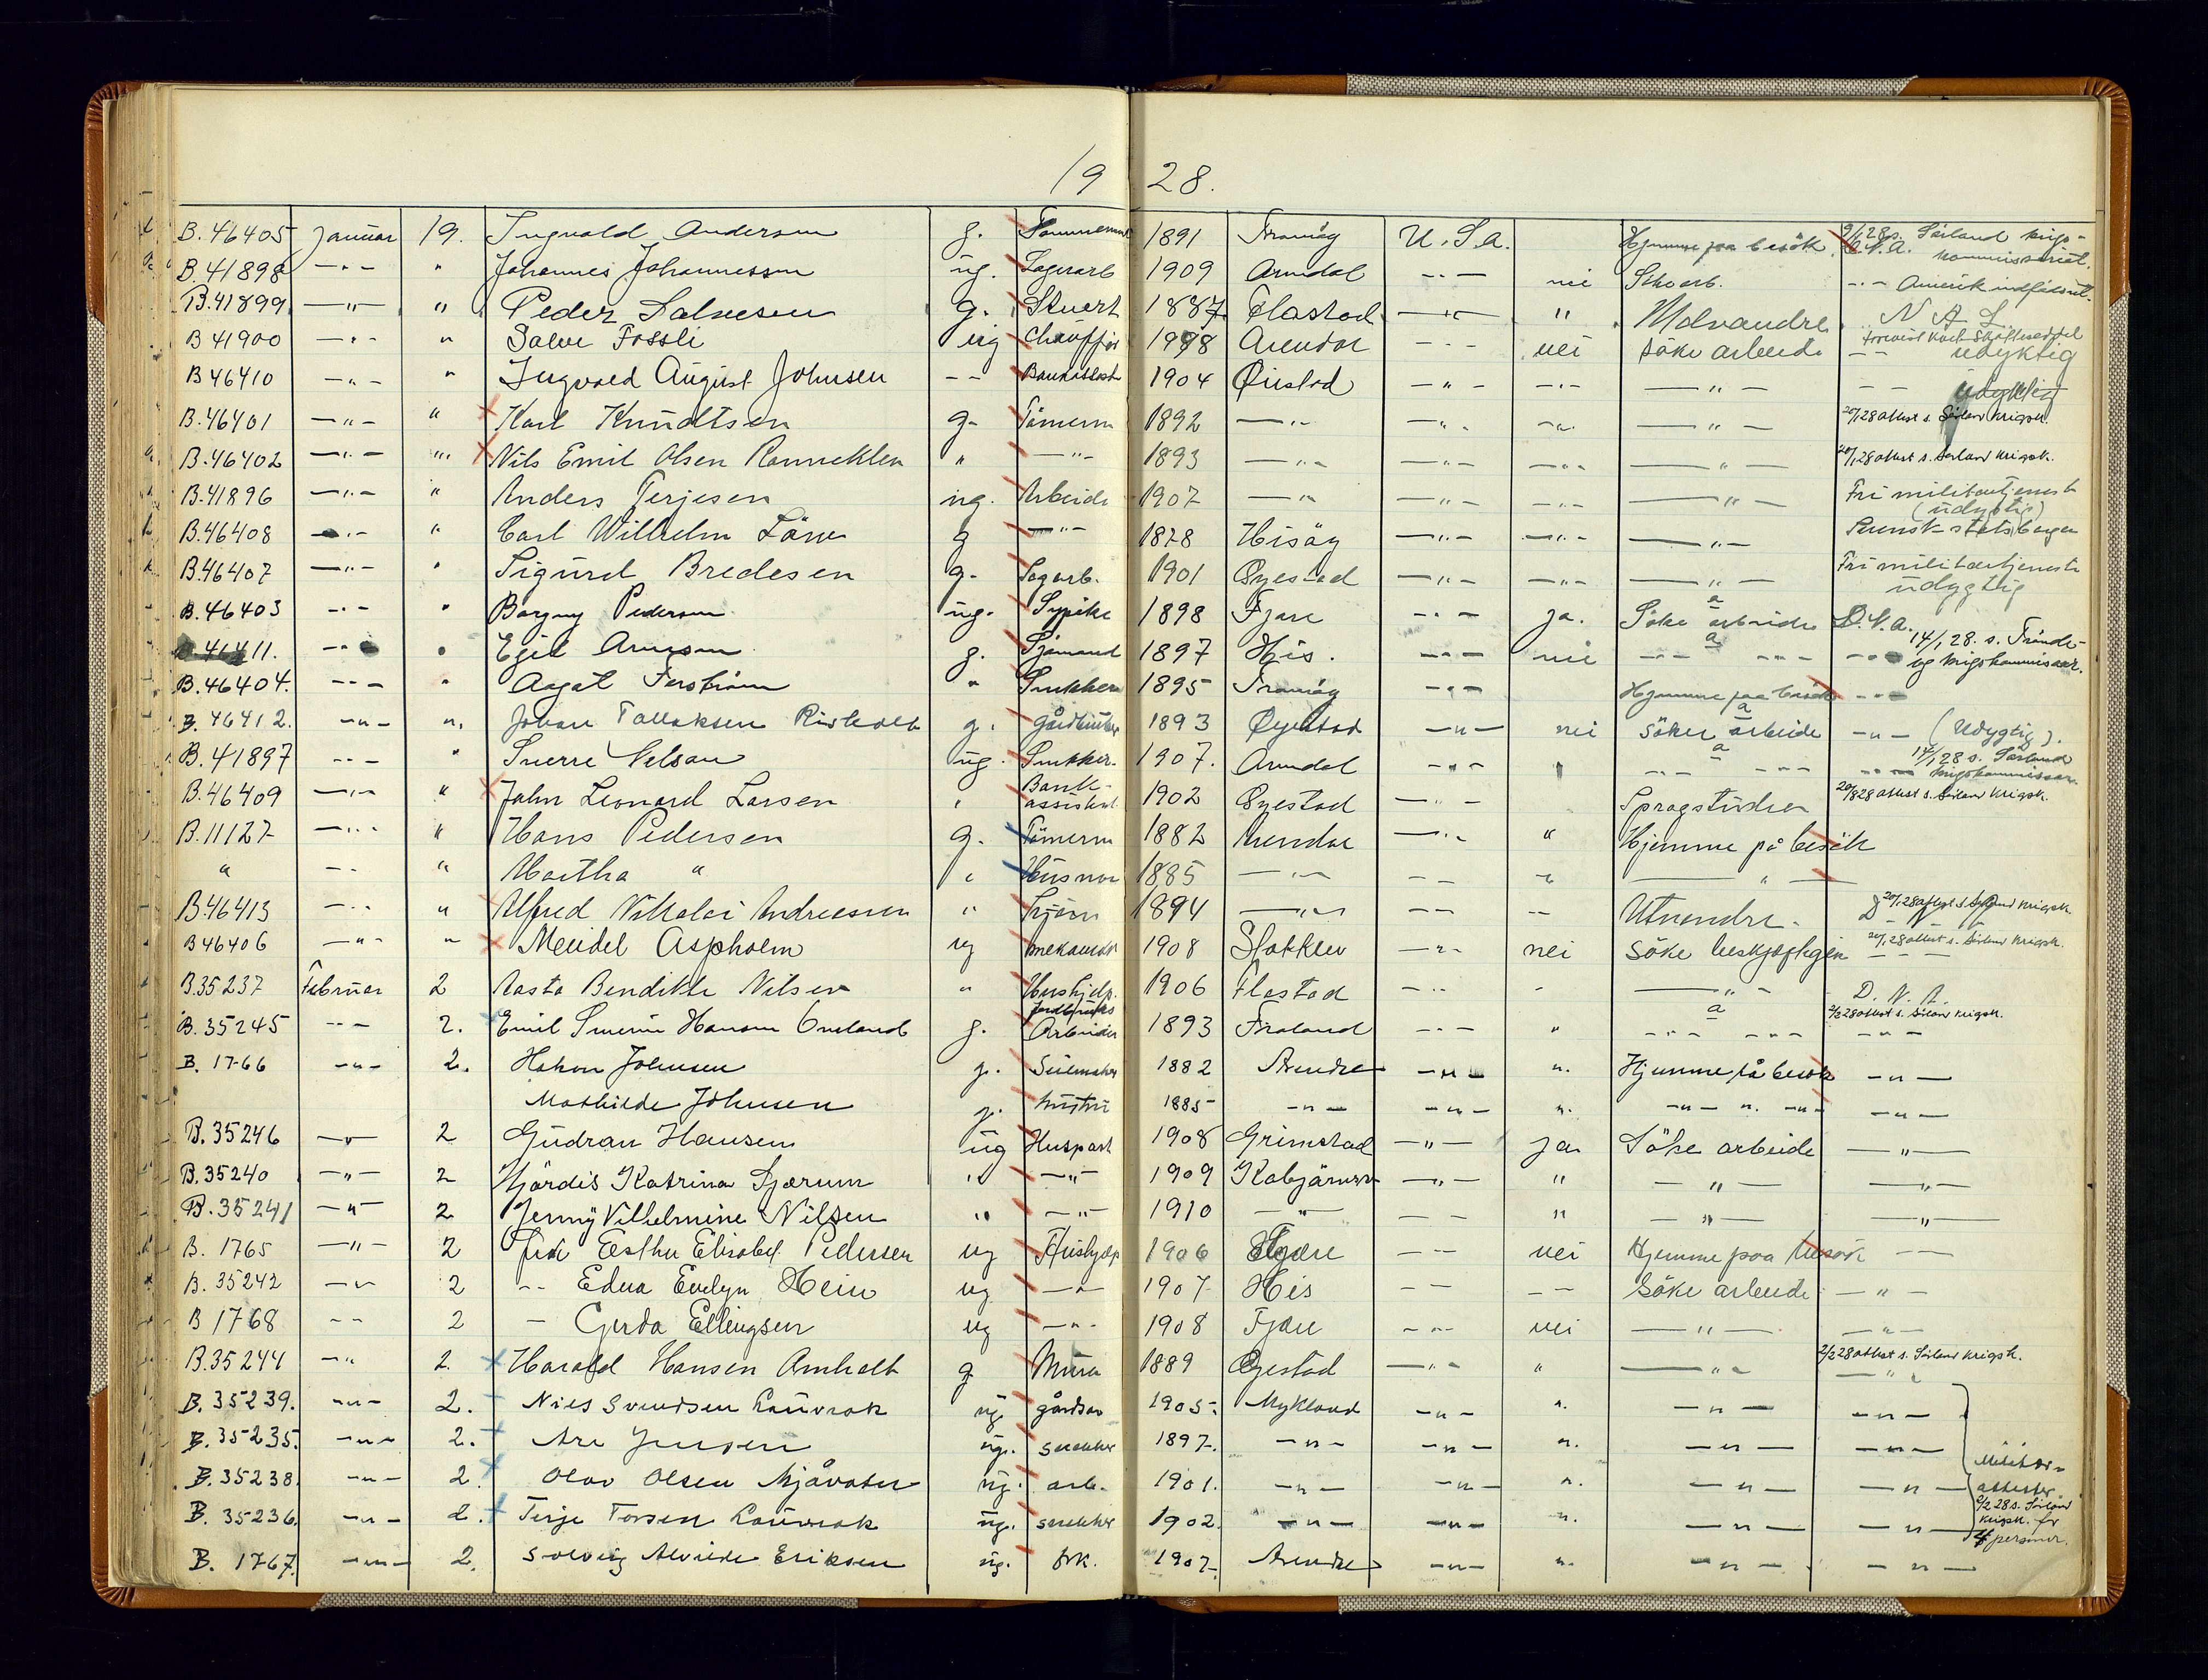 19 28.
B.46405 Januar 19. Ingvald Anderson g. 1891 Tromöy U.S.A. Hjemme paa besök 9/1 28 s. Sörland krigs-
kommissariat. D.N.A.
B.41898 — " — " Johannes Johannessen ug. Lagerarb 1909 Arendal — " — nei Sk arb. — " — Amerik
B.41899 — " — " Peder Salvesen g. Stuert 1887 Flostad — " — " Utvandre N A L
B 41900 — " — " Salve Fossli ug Chauffør 1908 Arendal — " — nei söke arbeide — — udyktig
B 46410 — " — " Ingvald August Johnsen — — 1904 Öiestad — " — — " — — " — — — udyktig
B.46401 — " — " Karl Knudtsen g. Tömerm 1892 — " — — " — — " — — " — 20/1 28 attest s. Sörland krigsk.
B.46402 — " — " Nils Emil Olsen Ranneklev " — " — 1893 — " — — " — — " — — " — 20/1 28 attest s. Sörland krigsk.
B.41896 — " — " Anders Terjesen ug. Arbeide 1907 — " — — " — — " — — " — Fri militærtjeneste
(udygtig)
B.46408 — " — " Carl Wilhelm g — " — 1878 Hisöy — " — — " — — " — Svensk statsborger
B.46407 — " — " Sigurd Bredesen g. Sagarb. 1901 Öyestad — " — — " — — " — Fri militærtjeneste
udygtig
B.46403 — " — " Borgny Pedersen ug. Sypike 1898 Fjære — " — ja. Söke arbeide D.N.A.
B.46411. — " — " Egil Arnesen g. Sjömand 1897 His. — " — nei — " — — " — 14/1 28. s. Trönde-
lag krigskommissær.
B.46404. — " — " Aagot " 1895 Tromöy — " — Hjemme paa besök — " —
B. 46412. — " — " Johan Tallaksen Risholt g. 1893 Öyestad — " — nei söker arbeide — " — (Udygtig).
B.41897 — " — " Sverre Nilsen ug. Snekker. 1907. Arendal — " — " — " — — " — 14/1 28 s. Sörland
krigskommissær.
B.46409 — " — " John Leonard Larsen " Bank-
assistent 1902 Öyestad — " — Sprogstudier 20/1 28 attest s. Sörland krigsk.
B.11127 — " — " Hans Pedersen g. Tömerm 1882 Arendal — " — " Hjemme på besök
" — " — " Martha " " Husmor 1885 — " — — — " — " —
B.46413 — " — " Alfred Nikolai Andreassen " 1894 — " — — — — — Utvandre. D 20/1 28 attest s. krigsk.
B 46406 — " — " Meidel Aspholm ug 1908 Stokken — " — nei söke beskjæftigelse 20/1 28 attest s. Sörland krigsk.
B.35237 Februar 2 Aasta Bendikte Nilsen " Hushjelp. 1906 Flostad — " — — " — D. N. A.
B.35245 — " — 2. Emil Severin Hansen g. Jordbruks
Arbeider 1893 Froland — " — " — " — — " — 2/2 28 attest s. Sörland krigsk.
B. 1766 — " — 2. Hakon Johnsen g. Seilmaker 1882 Arendal — " — ". Hjemme på besök — " —
Mathilde Johnsen g. hustru 1885 — " — — " — ". — " — ". — " — — " —
B.35246 — " — 2 Gudrun Hansen ug Huspost 1908 Grimstad — " — ja Söke arbeide — " —
B.35240 — " — 2 Hjördis Katrina " — " — 1909 — " — " — " — — " —
B.35241 — " — 2 Jenny Vilhelmine Nilsen " — " — 1910 — " — — — " — " — — " —
B. 1765 — " — 2 frk Esther Elisabet Pedersen ug Hushjelp 1906 Fjære — — nei Hjemme paa besök — —
B. 35242 — " — 2 — " — Edna Evelyn Hein ug — " — 1907 His — — — — söke arbeide — " —
B 1768 — — 2 — Gerda Ellingsen ug — " — 1908 Fjære — — nei — " — — " —
B.35244 — " 2. Harald Hansen Amholt g. Murer 1889 Öyestad — " — " — " — 2/2 28 attest s. Sörland krigsk.
B. 35239. — " — 2. Niels Svendsen Lauvrak ug. gårdsar 1905. Mykland — " — ". — " — — " —
B. 35235. — " — 2. Are Jensen ug. snekker 1897. — " — — " — ". — " — — " —
B. 35238. — " — 2. Olav Olsen Mjåvatn ug. arb. 1901. — " — — " — ". — " — — " —
B. 35236. — " — 2. Terje Torsen Lauvrak ug. snekker 1902. — " — — " — ". — " — — " —
Militær-
attester
2/2 28 s. Sörland
krigsk. for
4 personer.
B. 1767. — " — 2. Solveig Alvilde Eriksen ug. frk. 1907. Arendal — " — ". — " — — " —